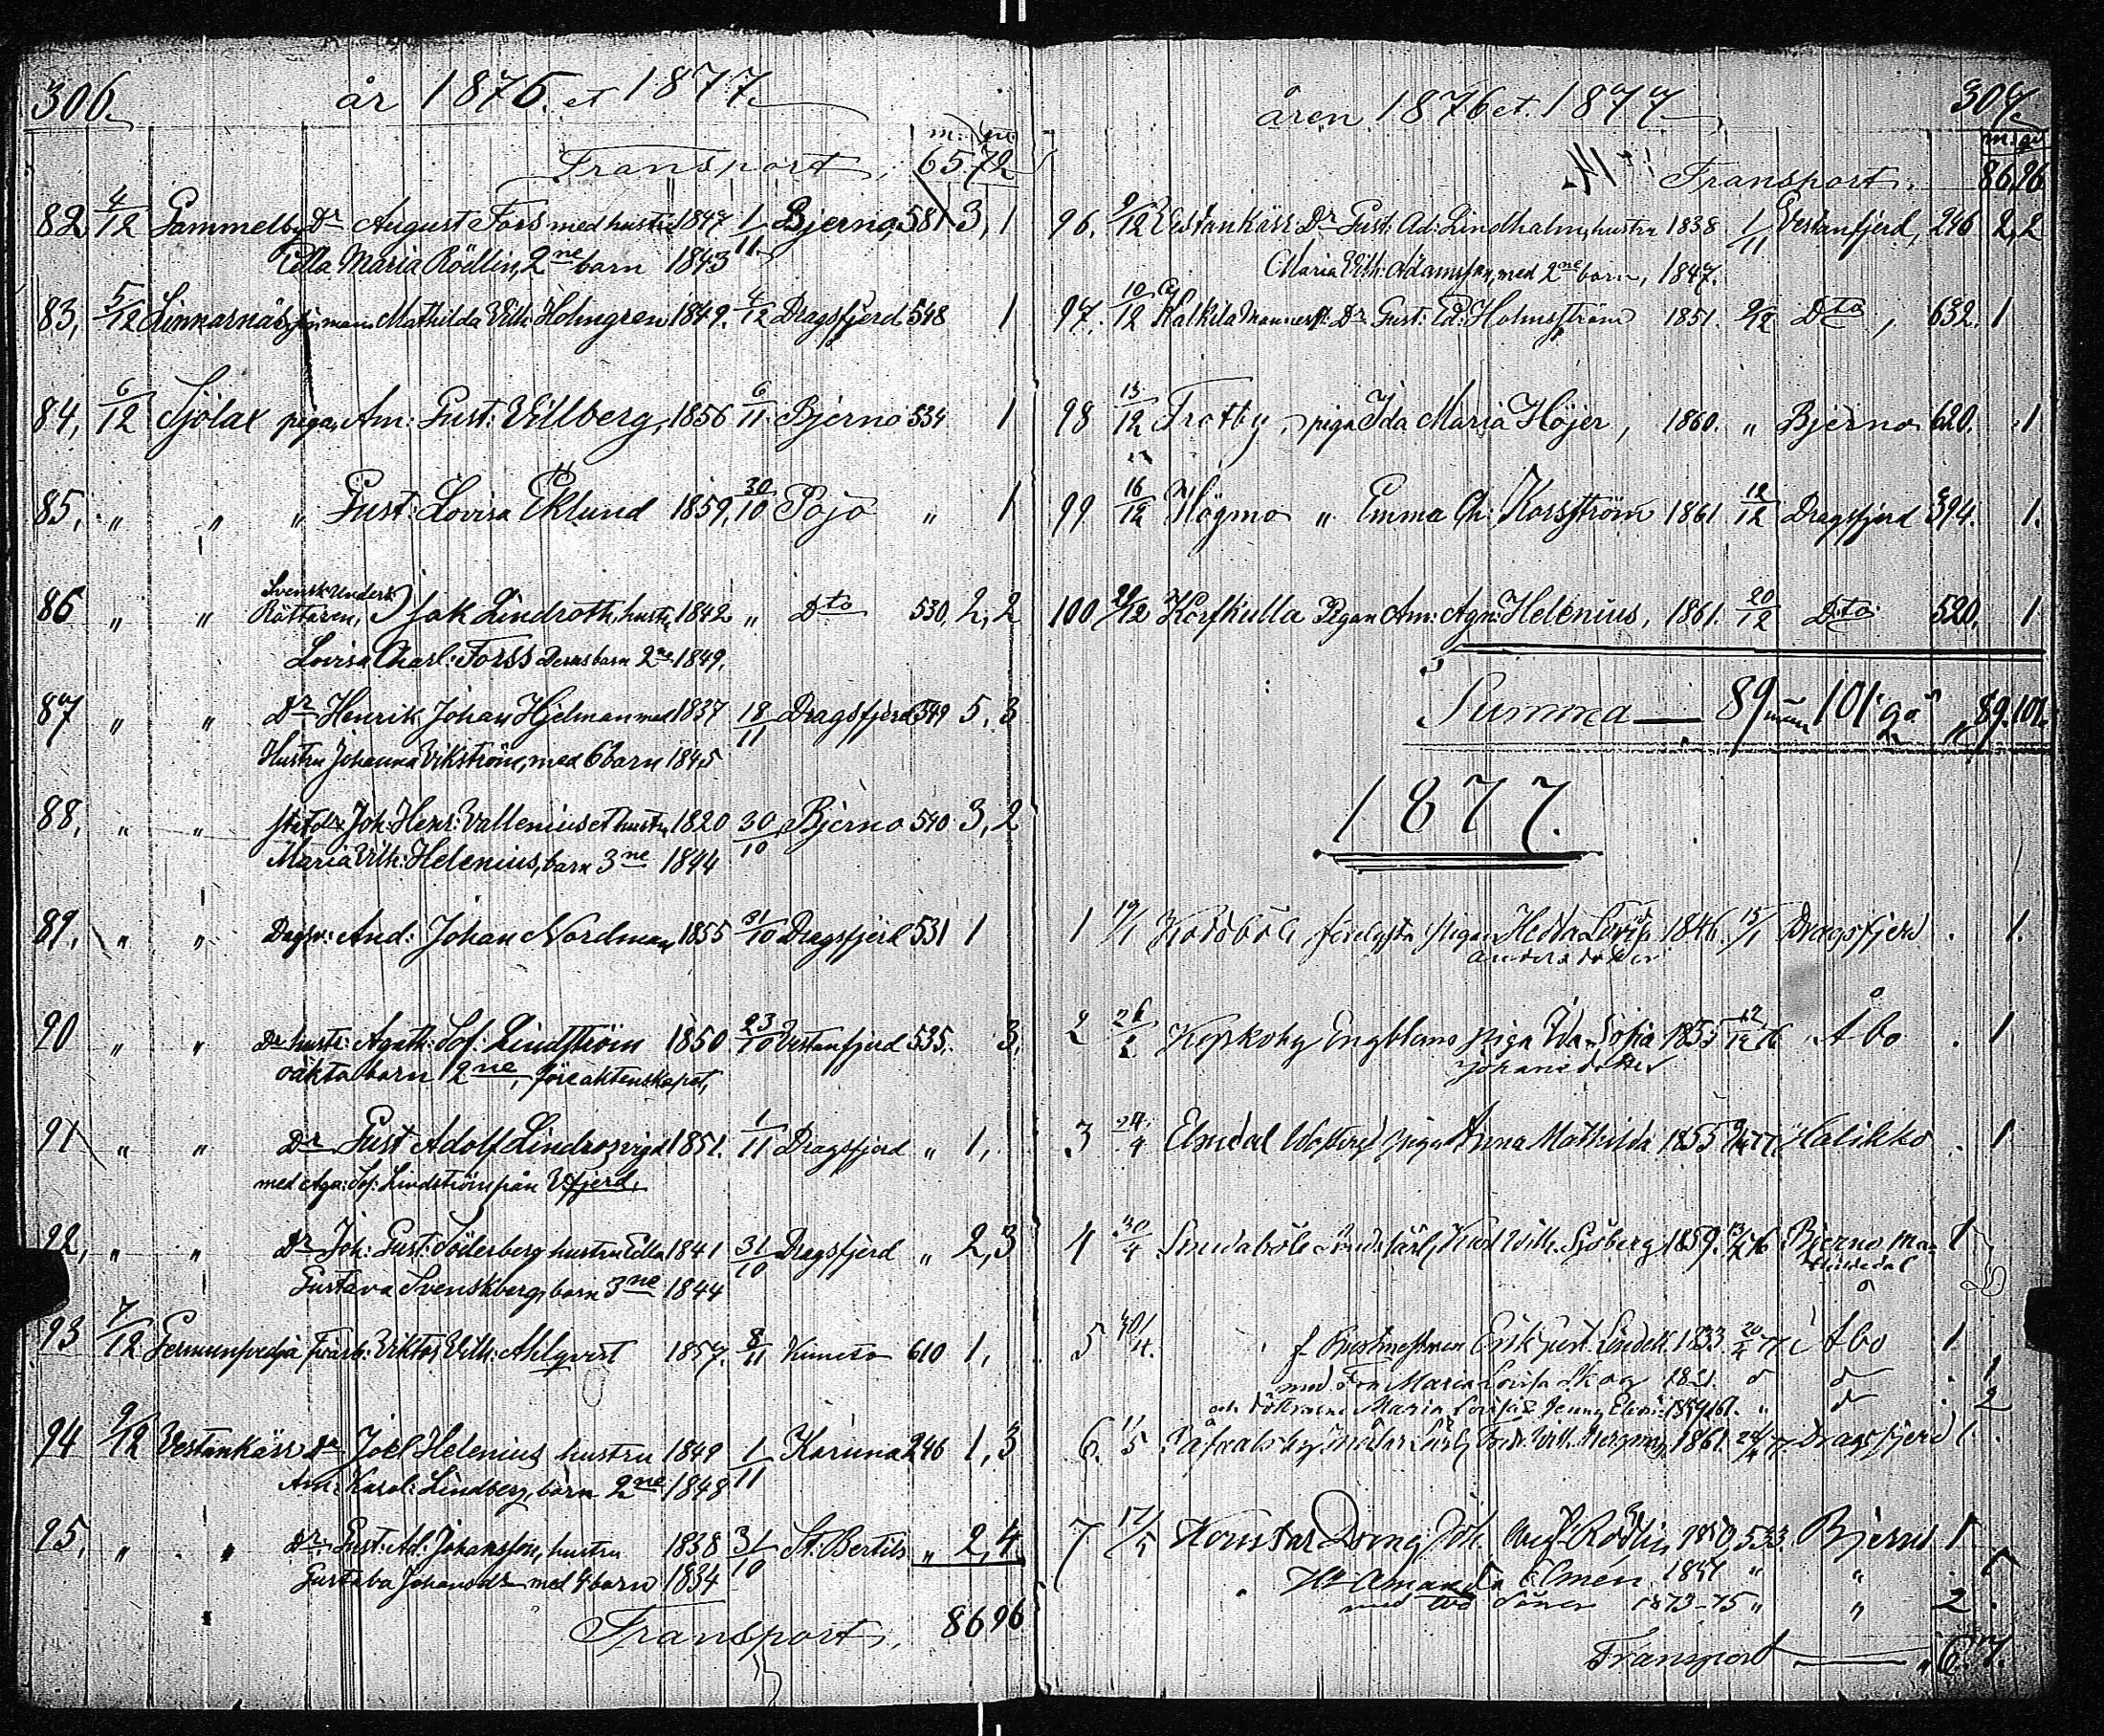 306.
år 1876. et 1877
m: qv:
Transport, 65 72
82, 4/12 Gammelby Dr August Fors med hustru 1847 1/11 Bjerno, 581 3, 1
Edla Maria Rödlin, 2ne barn 1843
83, 5/12 Linnarnäs Mathilda Vilh: Holmgren 1849. 4/12 Dragsfjerd 548 1
84, 6/12 Sjölax pigan Am: Gust: Villberg, 1856 6/11 Bjerno 534 1
85, „ „ „ Gust: Lovisa Eklund 1859, 30/10 Pojo „ 1
Svensk Underk.
86 „ „ Rättaren, Isak Lindroth, hustru 1842 „ Dto 530, 2, 2
Lovisa Charl: Forss Deras barn 2ne 1849,
87 „ „ Dr Henrik Johan Hjelman med 1837 18/11 Dragsfjerd 549 5, 3
Hustru Johanna Vikström, med 6 barn 1845
88, „ „ Joh: Henr: Vallenius et hustru 1820 30/10 Bjerno 540 3, 2
Maria Vilh: Helenius, barn 3ne 1844
89, „ „ Dagsv: And: Johan Nordman 1855 31/10 Dragsfjerd 531 1
90 „ „ Dr hustr: Agath: Sof: Lindström 1850 23/10 Vestanfjerd 535, 3,
oäkta barn 2ne, före äktenskapet,
91 „ „ Dr Gust Adolf Lindros vigd 1851. 1/11 Dragsfjerd „ 1,
med Aga: Sof: Lindström från Vfjerd,
92, „ „ Dr Joh: Gust: Söderberg hustru Edla 1841 31/10 Dragsfjerd „ 2, 3
Gustava Svenskberg, barn 3ne 1844
93 7/12 Viktor Vilh: Ahlqvist 1857. 8/11 Kimito 610 1,
94 9/12 Vestankärr Dr Joel Helenius hustru 1849 1/11 Karuna 246 1, 3
Am: Karol: Lindberg, barn 2ne 1848
95, „ „ Dr Gust: Ad: Johansson, hustru 1838 31/10 St: Bertils „ 2, 4
Gustava Johansdr med 4 barn 1834
Transport, 86 96
åren 1876 et. 1877
307
m: qv
Transport. 86,96
96. 9/12 Vestankärr Dr Gust: Ad: Lindholm, hustru 1838 1/11 Vestanfjerd, 246 2, 2
Maria Vilh: Adamsson, med 2ne barn, 1847.
97. 10/12 Kalkila Dr Gust: Ed: Holmström 1851. 9/12 Dto, 632. 1
98 13/12 Trotby, piga Ida Maria Höjer, 1860. „ Bjerno 620. 1
99 16/12 Högmo „ Emma Ch: Korsström 1861 12/12 Dragsfjerd 394. 1.
100 21/12 Korfkulla Pigan Am: Agn: Helenius, 1861. 20/12 Dto 520, 1
Summa — 89 män 101 qv. 89. 101.
1877.
1 19/1 pigan Hedda Lovisa 1846. 15/1 Dragsfjerd . 1.
Andersdotter
2 26/2 Kopkoby Engbloms piga Ida Sofia 1853 12/12 76 Åbo . 1
Johansdotter
3 24/4 Elmdal piga Anna Mathilda 1855 77 Halikko . 1
4 30/4 Smedaböle Vilh. Sjöberg 1859. 76 Bjerno Ma- 1
thildedal
5 30/4. f Erik Just. Lindell 1833. 20/4 77 i Åbo 1
med Fru Maria Lovisa Skog 1831. d d . 1
och döttrarna Maria Lovisa & Jenny „ d . 2
6. 1/5 Vilh. Bergman 1861. 24/4 77 Dragsfjerd 1 .
7 12/5 Dreng Joh. Rödlin 1850, 533 Bjerno 1
Hu Amanda Elmén 1851 „ „ . 1
med två söner 1873-75 „ „ 2 .
Transport — 6. 7.